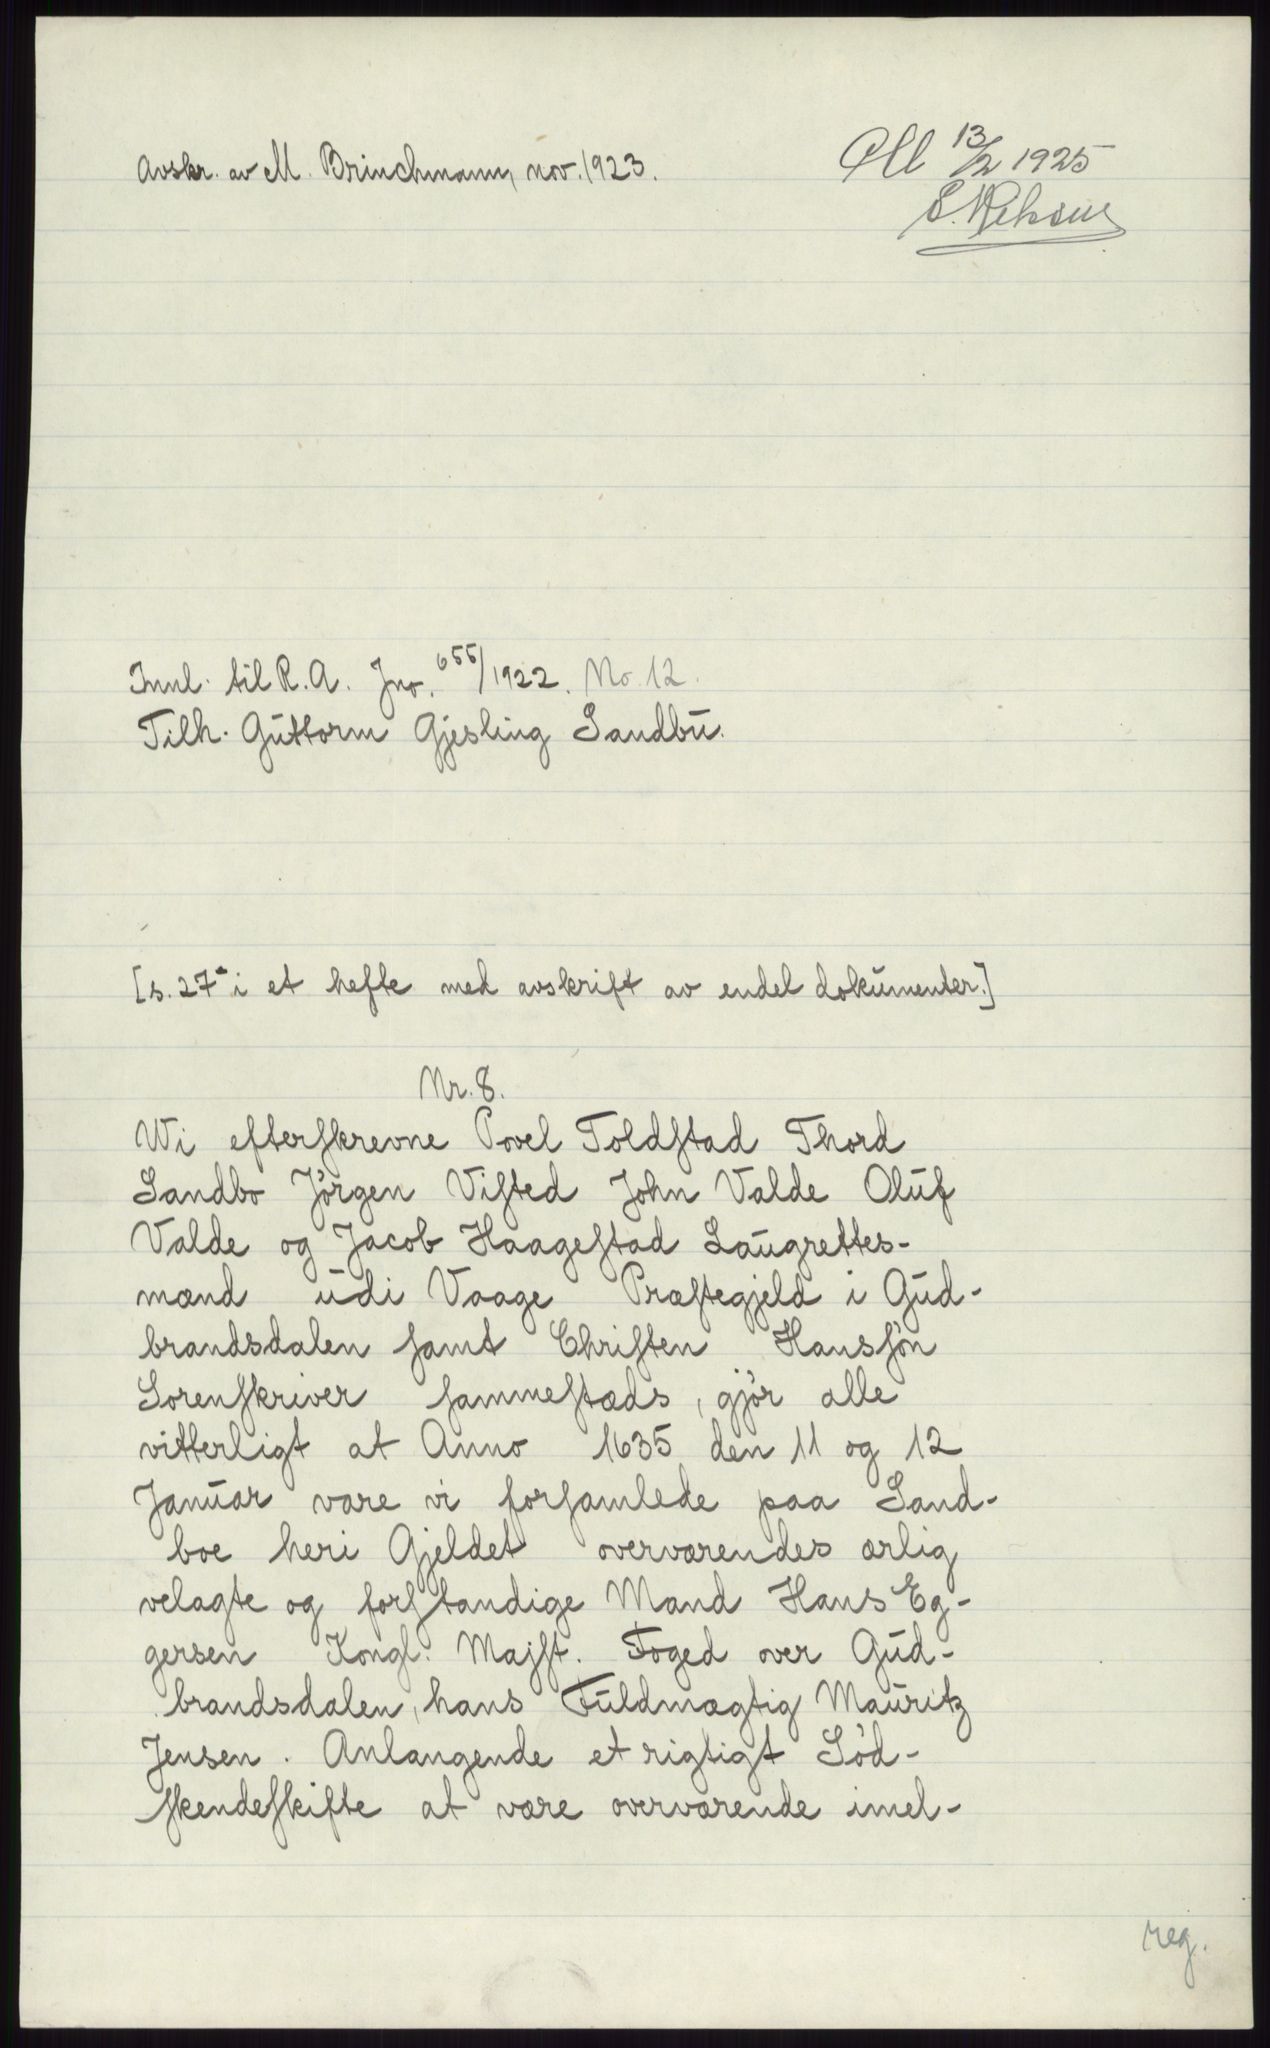 Avskr. av M. Brinchmann, nov. 1923.
13/2 1925
Innl. til R.A. Jno. 655/1922. No. 12.
Tilh. Guttorm Gjesling Sandbu.
[s. 27 i et hefte med avskrift av endel dokumenter.]
Nr. 8.
Wi efterskrevne Povel Toldstad Thord
Sandbo Jörgen Visted John Valde Oluf
Valde og Jacob Haagestad Laugrettes-
mænd udi Vaage Præstegjeld i Gud-
brandsdalen samt Christen Hanssön
Sorenskriver sammestæds, gjör alle
vitterligt at Anno 1635 den 11 og 12
Januar vare vi forsamlede paa Sand-
boe heri Gjeldet overværendes ærlig
velagte og forstandige Mand Hans Eg-
gersen Kongl. Majst. Foged over Gud-
brandsdalen, hans Fuldmægtig Mauritz
Jensen. Anlangende et rigtigt Söd-
skendeskifte at være overværende imel-
reg.